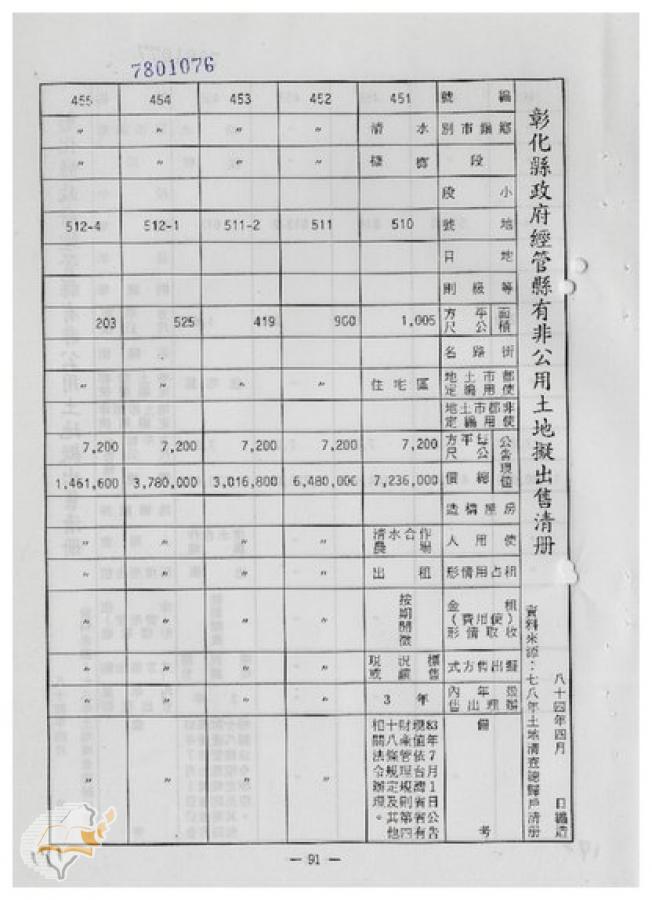 7801076
彰化縣政府經管縣有非公用土地擬出售清冊
八十四年四月 日編造
資料來源:七八年土地清查總歸戶清冊
編號 451 452 453 454 455
鄉鎮市別 清水 〃 〃 〃 〃
段 槺榔 〃 〃 〃 〃
小段
地號 510 511 511-2 512-1 512-4
地目
等級則
面積 平方公尺 1,005 900 419 525 203
街路名
都市土地使用編定 住宅區 〃 〃 〃 〃
非都市土地使用編定
公告現值 每平方公尺 7,200 7,200 7,200 7,200 7,200
總價 7,236,000 6,480,000 3,016,800 3,780,000 1,461,600
房屋構造
使用人 清水合作農場 〃 〃 〃 〃
租占用情形 出租 〃 〃 〃 〃
租金(使用費)收取情形 按期開徵 〃 〃 〃 〃
擬出售方式 現況標售或讓售 〃 〃 〃 〃
擬辦理出售年內 3年 〃 〃 〃 〃
備考 83年7月1日公告現值依台灣省省有財產管理規則第四十八條規定及其他相關法令辦理。 〃 〃 〃 〃
— 91 —